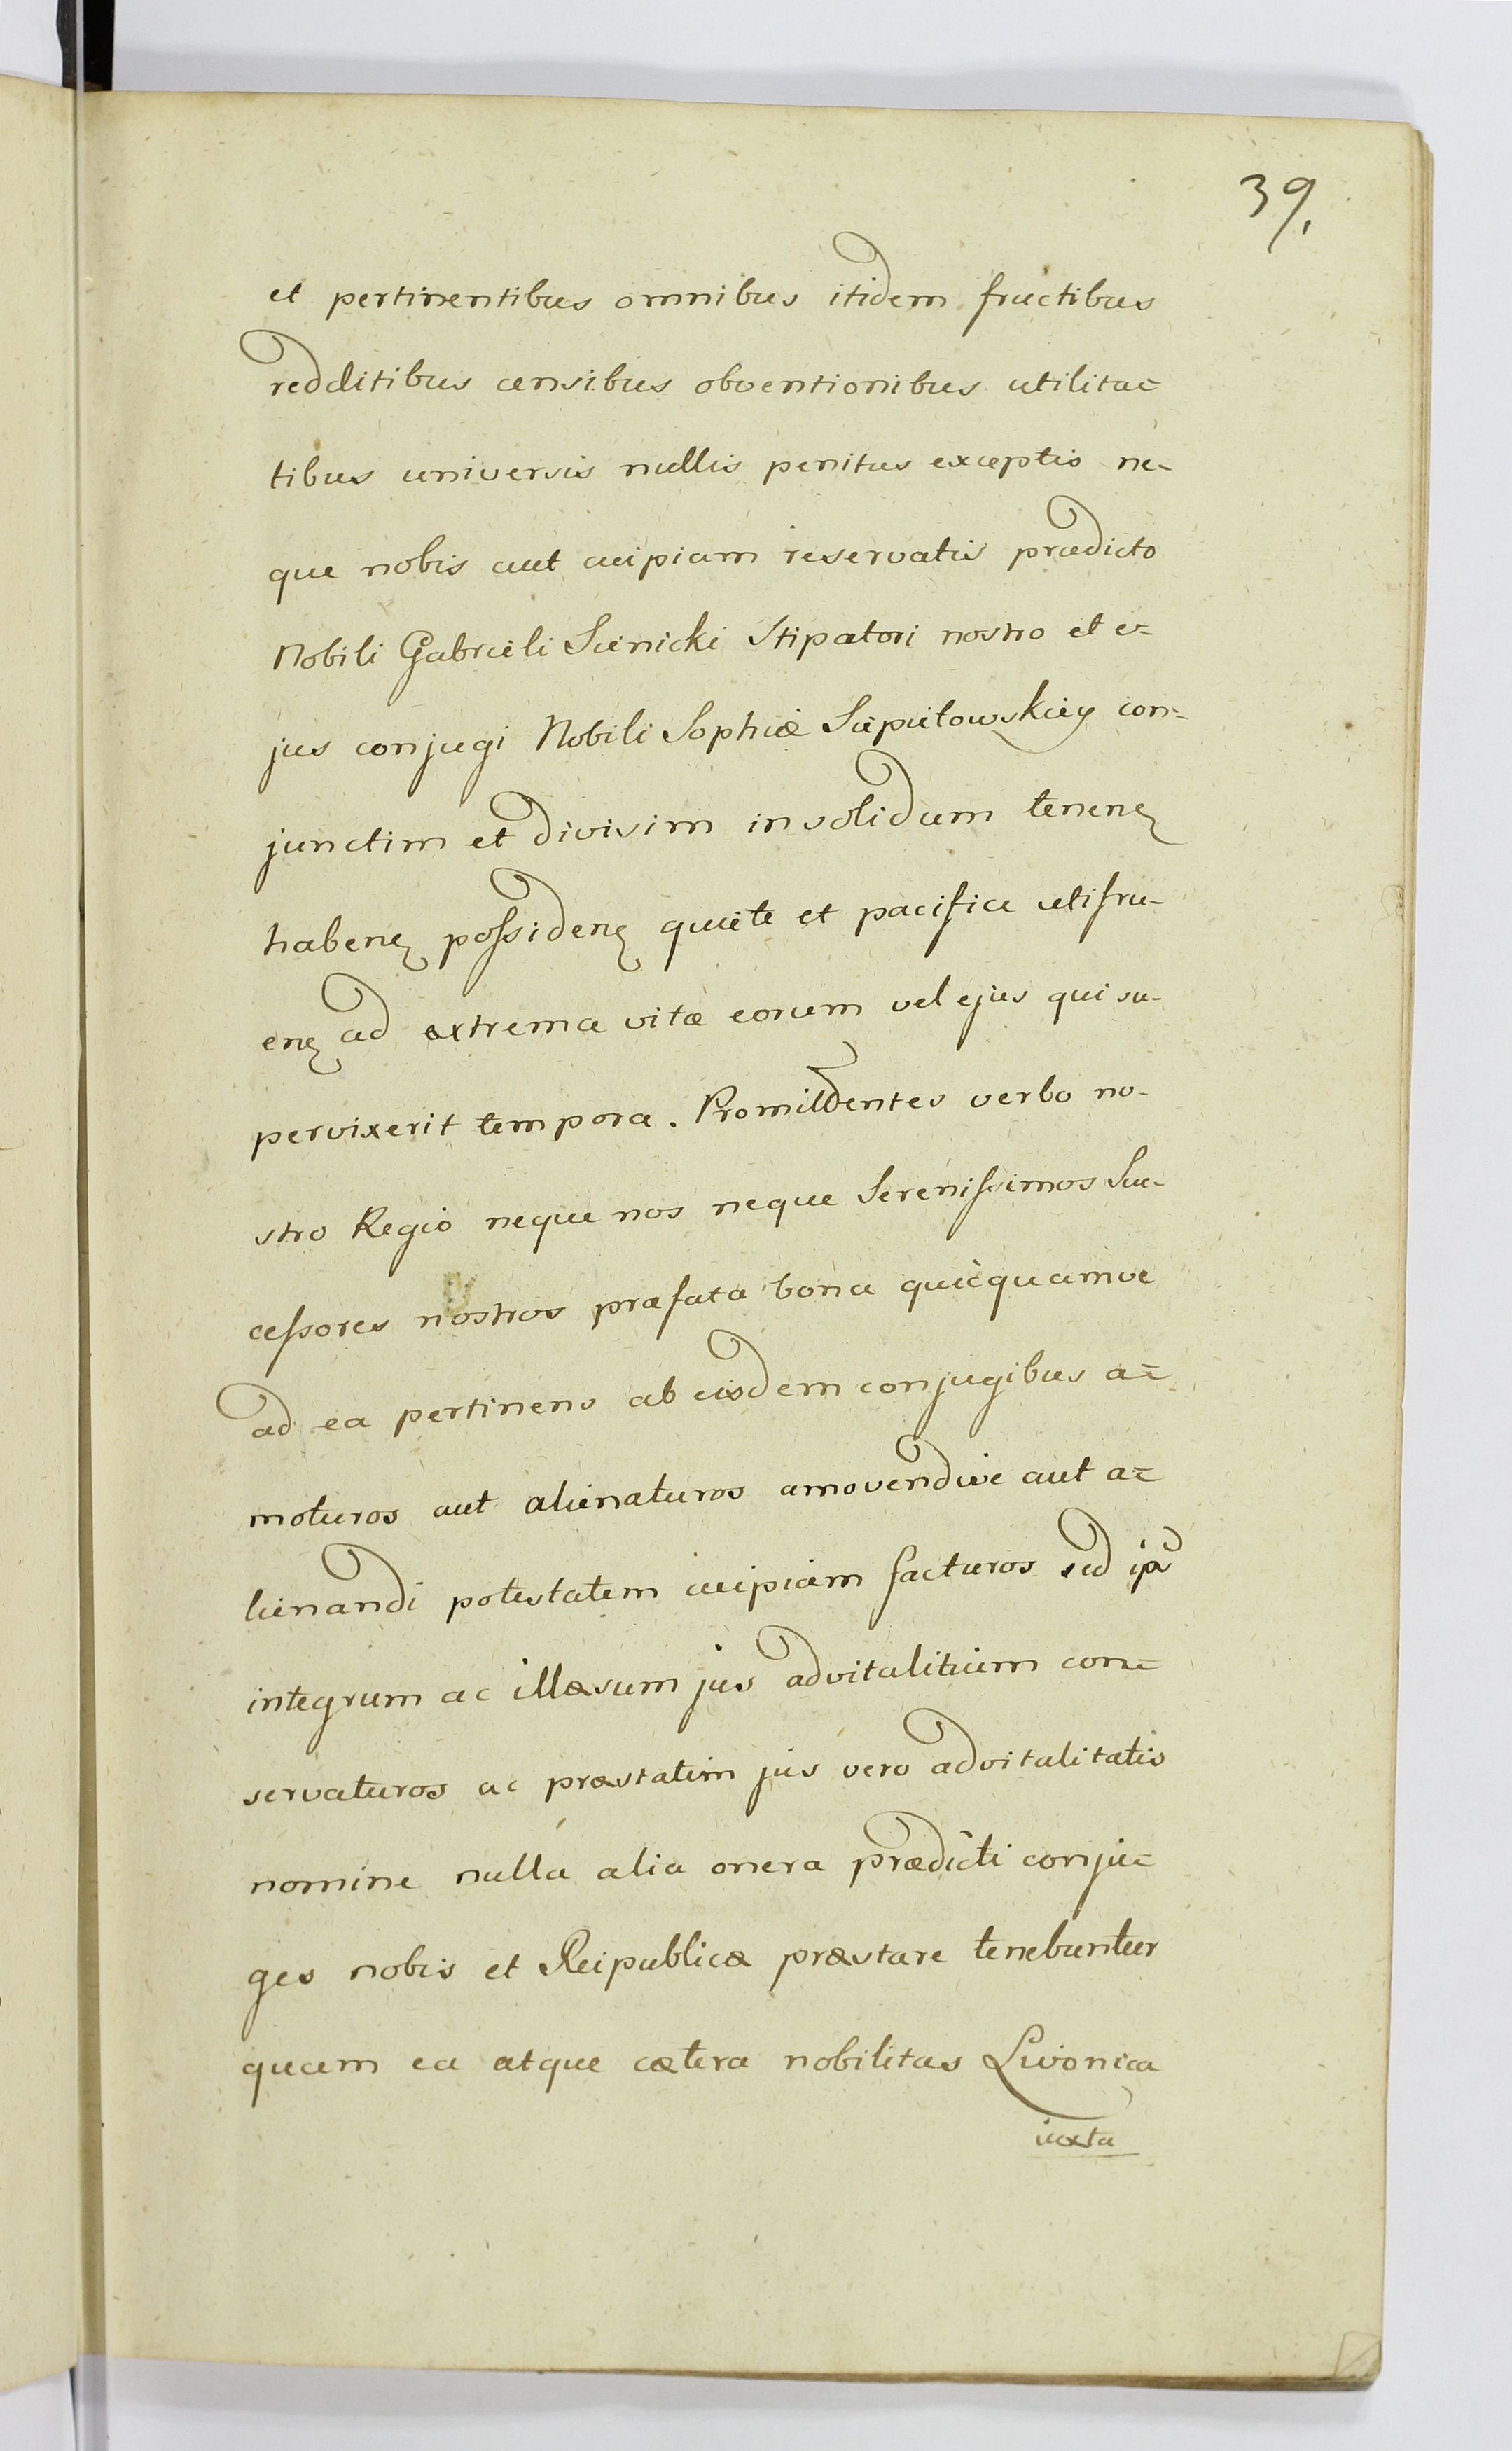 39.
et pertinentibus omnibus itidem fructibus
redditibus censibus obventionibus utilita=
tibus universis nullis penitus exceptis ne-
que nobis aut cuipiam reservatis prædicto
Nobili Gabrieli Sienicki Stipatori nostro et e=
jus conjugi Nobili Sophiæ Siepietowskiey con=
junctim et divisim in solidum tenen
haben possiden quiete et pacifice utifru-
en ad extrema vitæ eorum vel ejus qui su-
pervixerit tempora. Promittentes verbo no-
stro Regio neque nos neque Serenissimos Suc-
cessores nostros præfata bona quicquamve
ad ea pertinens ab eisdem conjugibus a=
moturos aut alienaturos amovendive aut a=
lienandi potestatem cuipiam facturos sed ip̄
integrum ac illæsum jus advitalitium con=
servaturos ac præstatim jus vero advitalitatis
nomine nulla alia onera prædicti conju=
ges nobis et Reipublicæ præstare tenebuntur
quam ea atque cætera nobilitas Livonica
iuxta